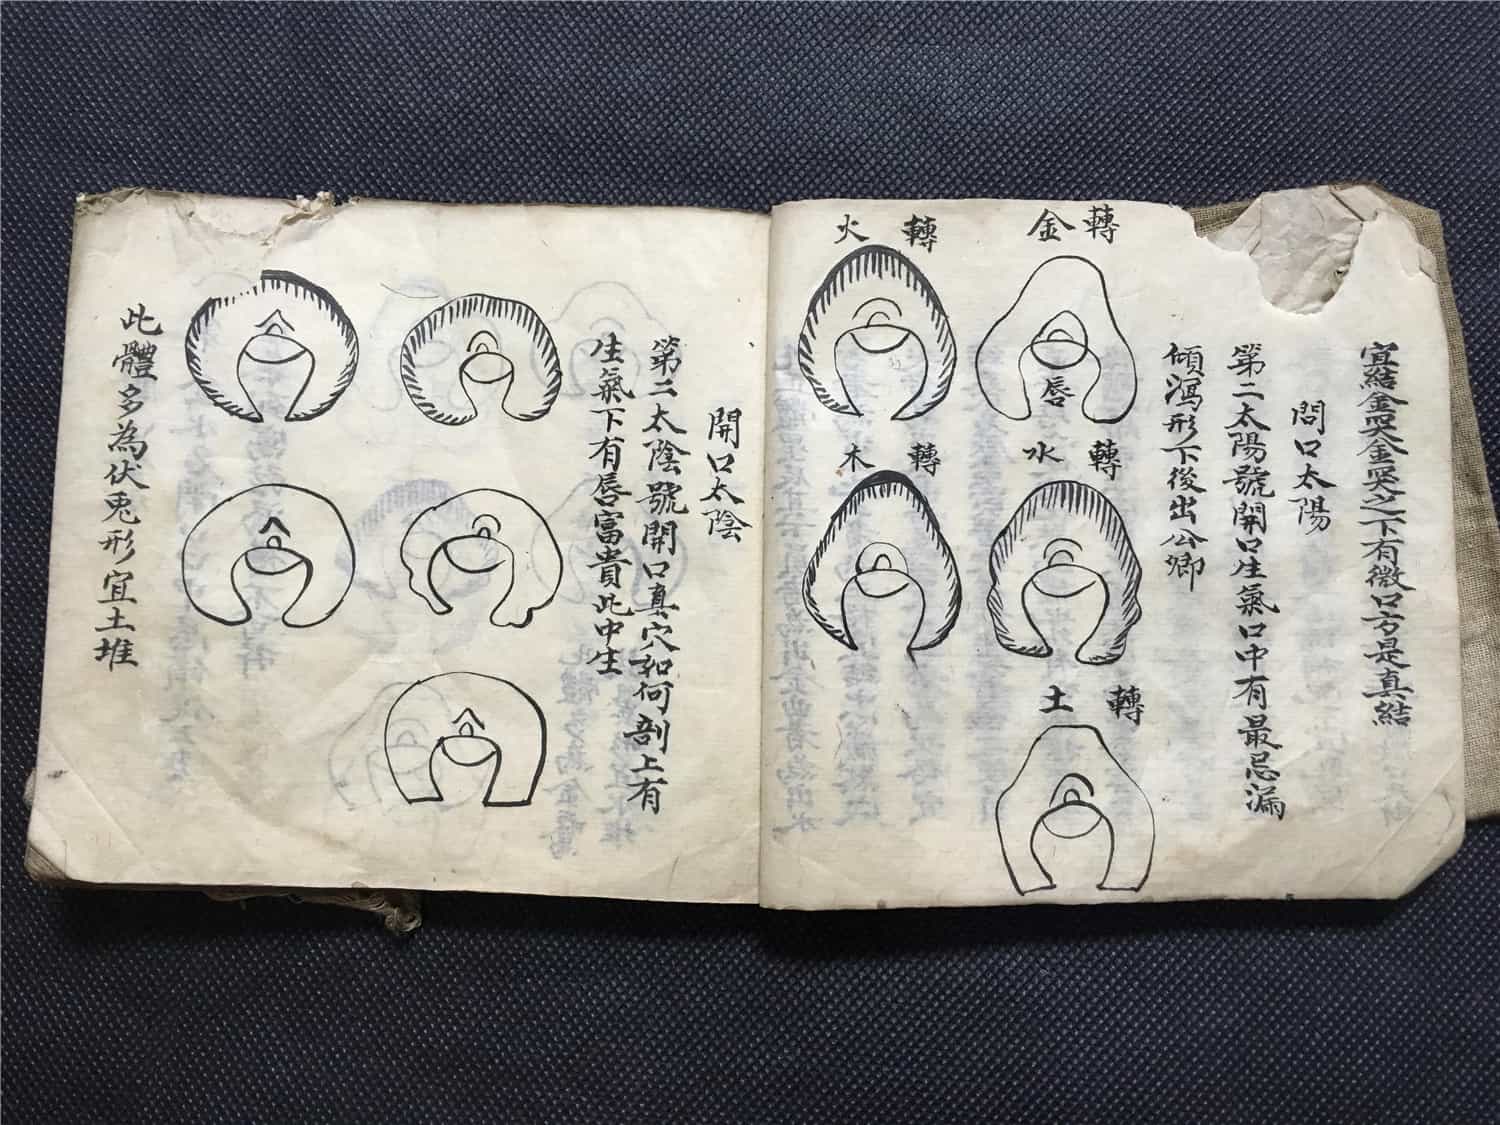 宜結金
金
之下有微口方是真結
問口太陽
第二太陽號開口生氣口中有最忌漏
傾瀉形下後出公卿
金轉
唇
水轉
土轉
火轉
木轉
開口太陰
第二太陰號開口真穴如何剖上有
生氣下有唇富貴此中生
此體多為伏兎形宜土堆